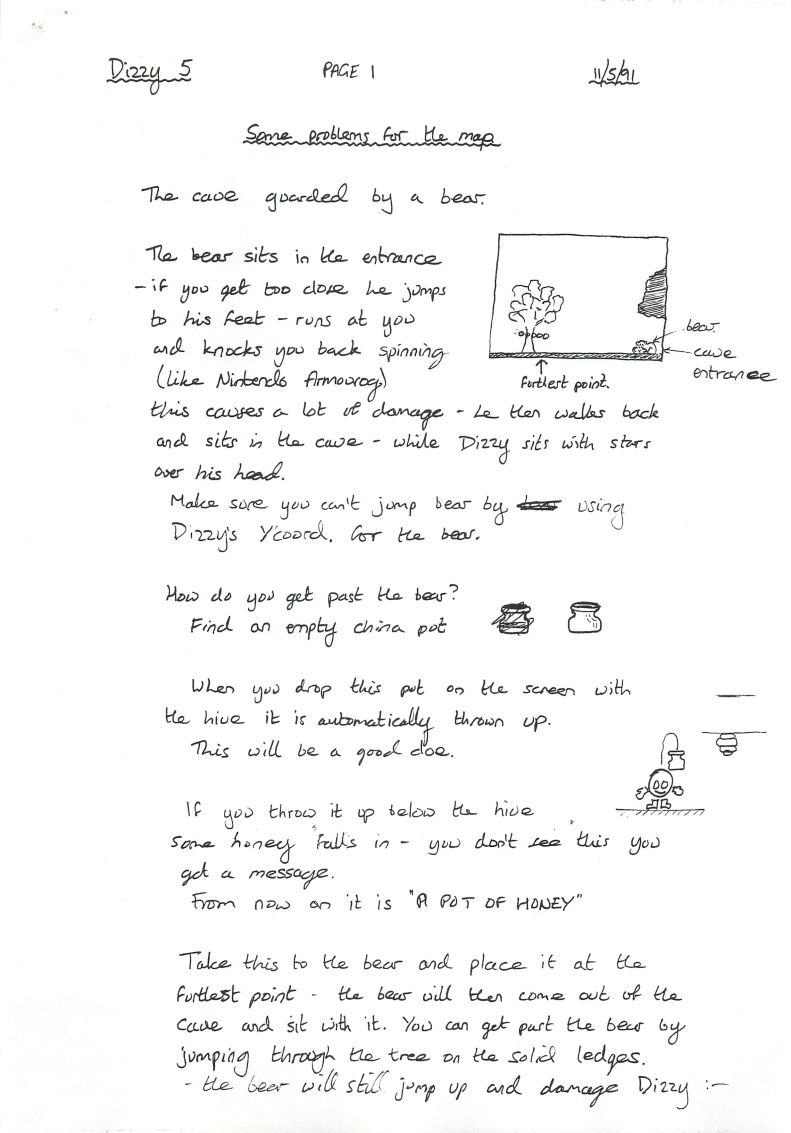 Dizzy 5 PAGE 1 11/5/91
Some problems for the map
The cave guarded by a bear.
The bear sits in the entrance
- if you get too close he jumps
to his feet - runs at you
and knocks you back spinning
(like Nintendo Armourog)
bear
cave
entrance
furthest point.
this causes a lot of damage - he then walks back
and sits in the cave - while Dizzy sits with stars
over his head.
Make sure you can't jump bear by using
Dizzy's Y'coord. for the bear.
How do you get past the bear?
Find an empty china pot
When you drop this pot on the screen with
the hive it is automatically thrown up.
This will be a good cloe.
If you throw it up below the hive
some honey falls in - you don't see this you
get a message.
From now on it is "A POT OF HONEY"
Take this to the bear and place it at the
furthest point - the bear will then come out of the
cave and sit with it. You can get past the bear by
jumping through the tree on the solid ledges.
- the bear will still jump up and damage Dizzy :-